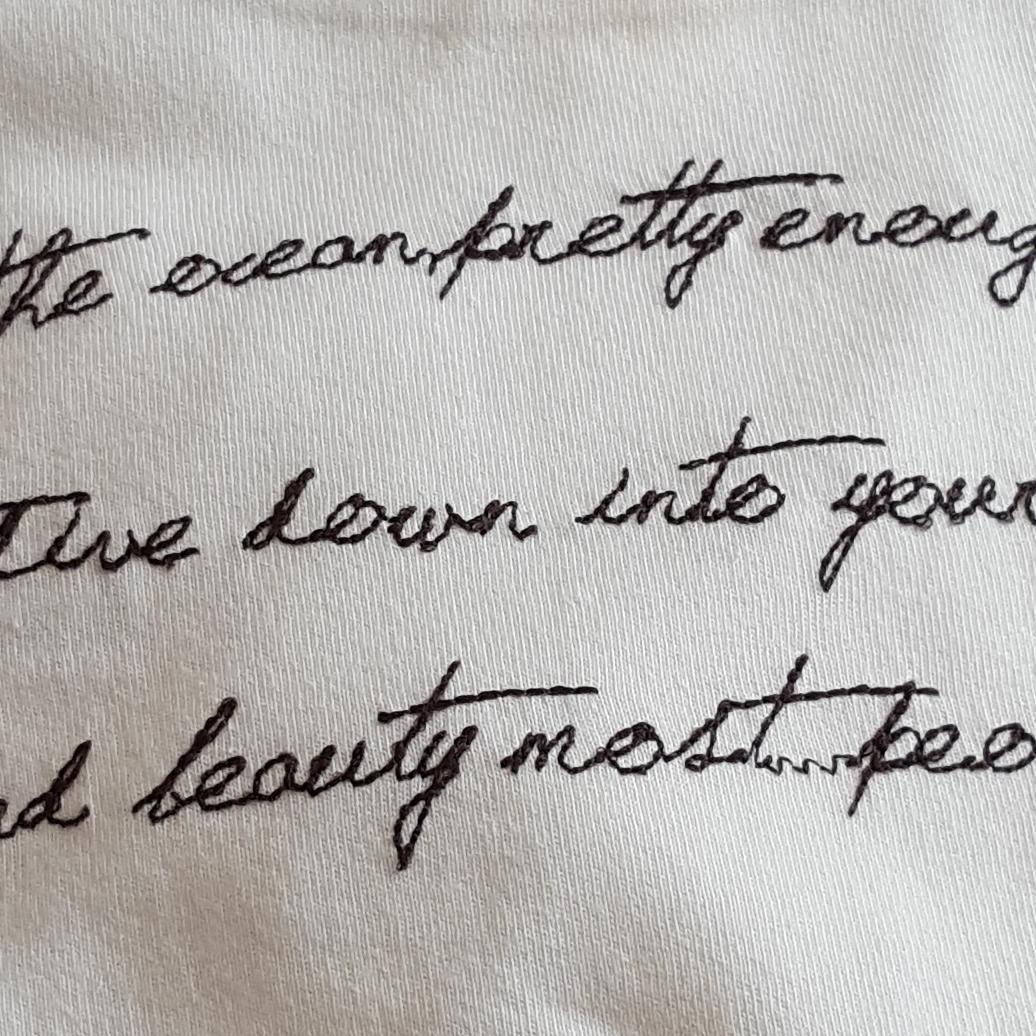 the ocean, pretty enoug
Dive down into your
nd beauty most peo